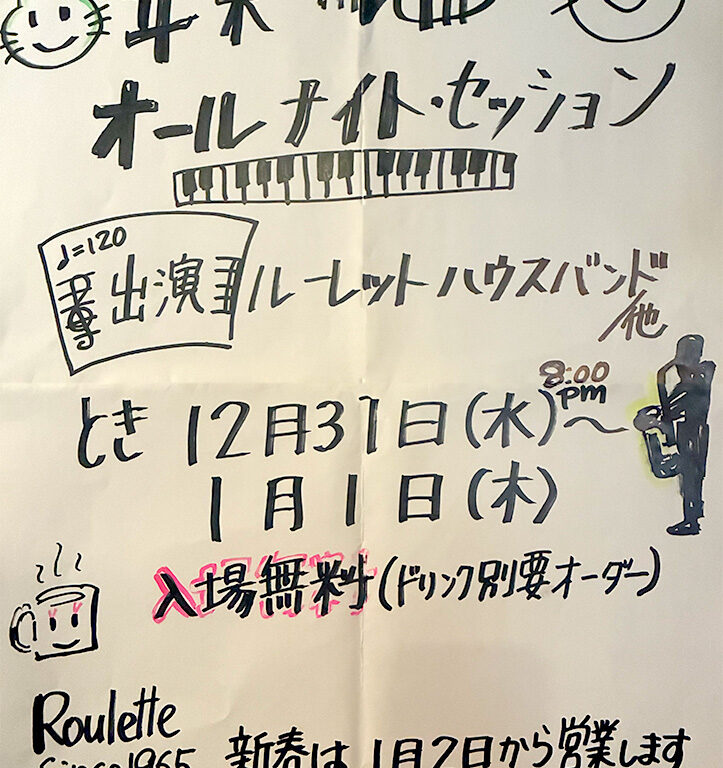 オールナイト・セッション
♩=120
出演 ルーレットハウスバンド/他
8:00
pm
とき 12月31日(水)〜
1月1日(木)
入場無料(ドリンク別要オーダー)
Roulette
Since1965
新春は1月2日から営業します